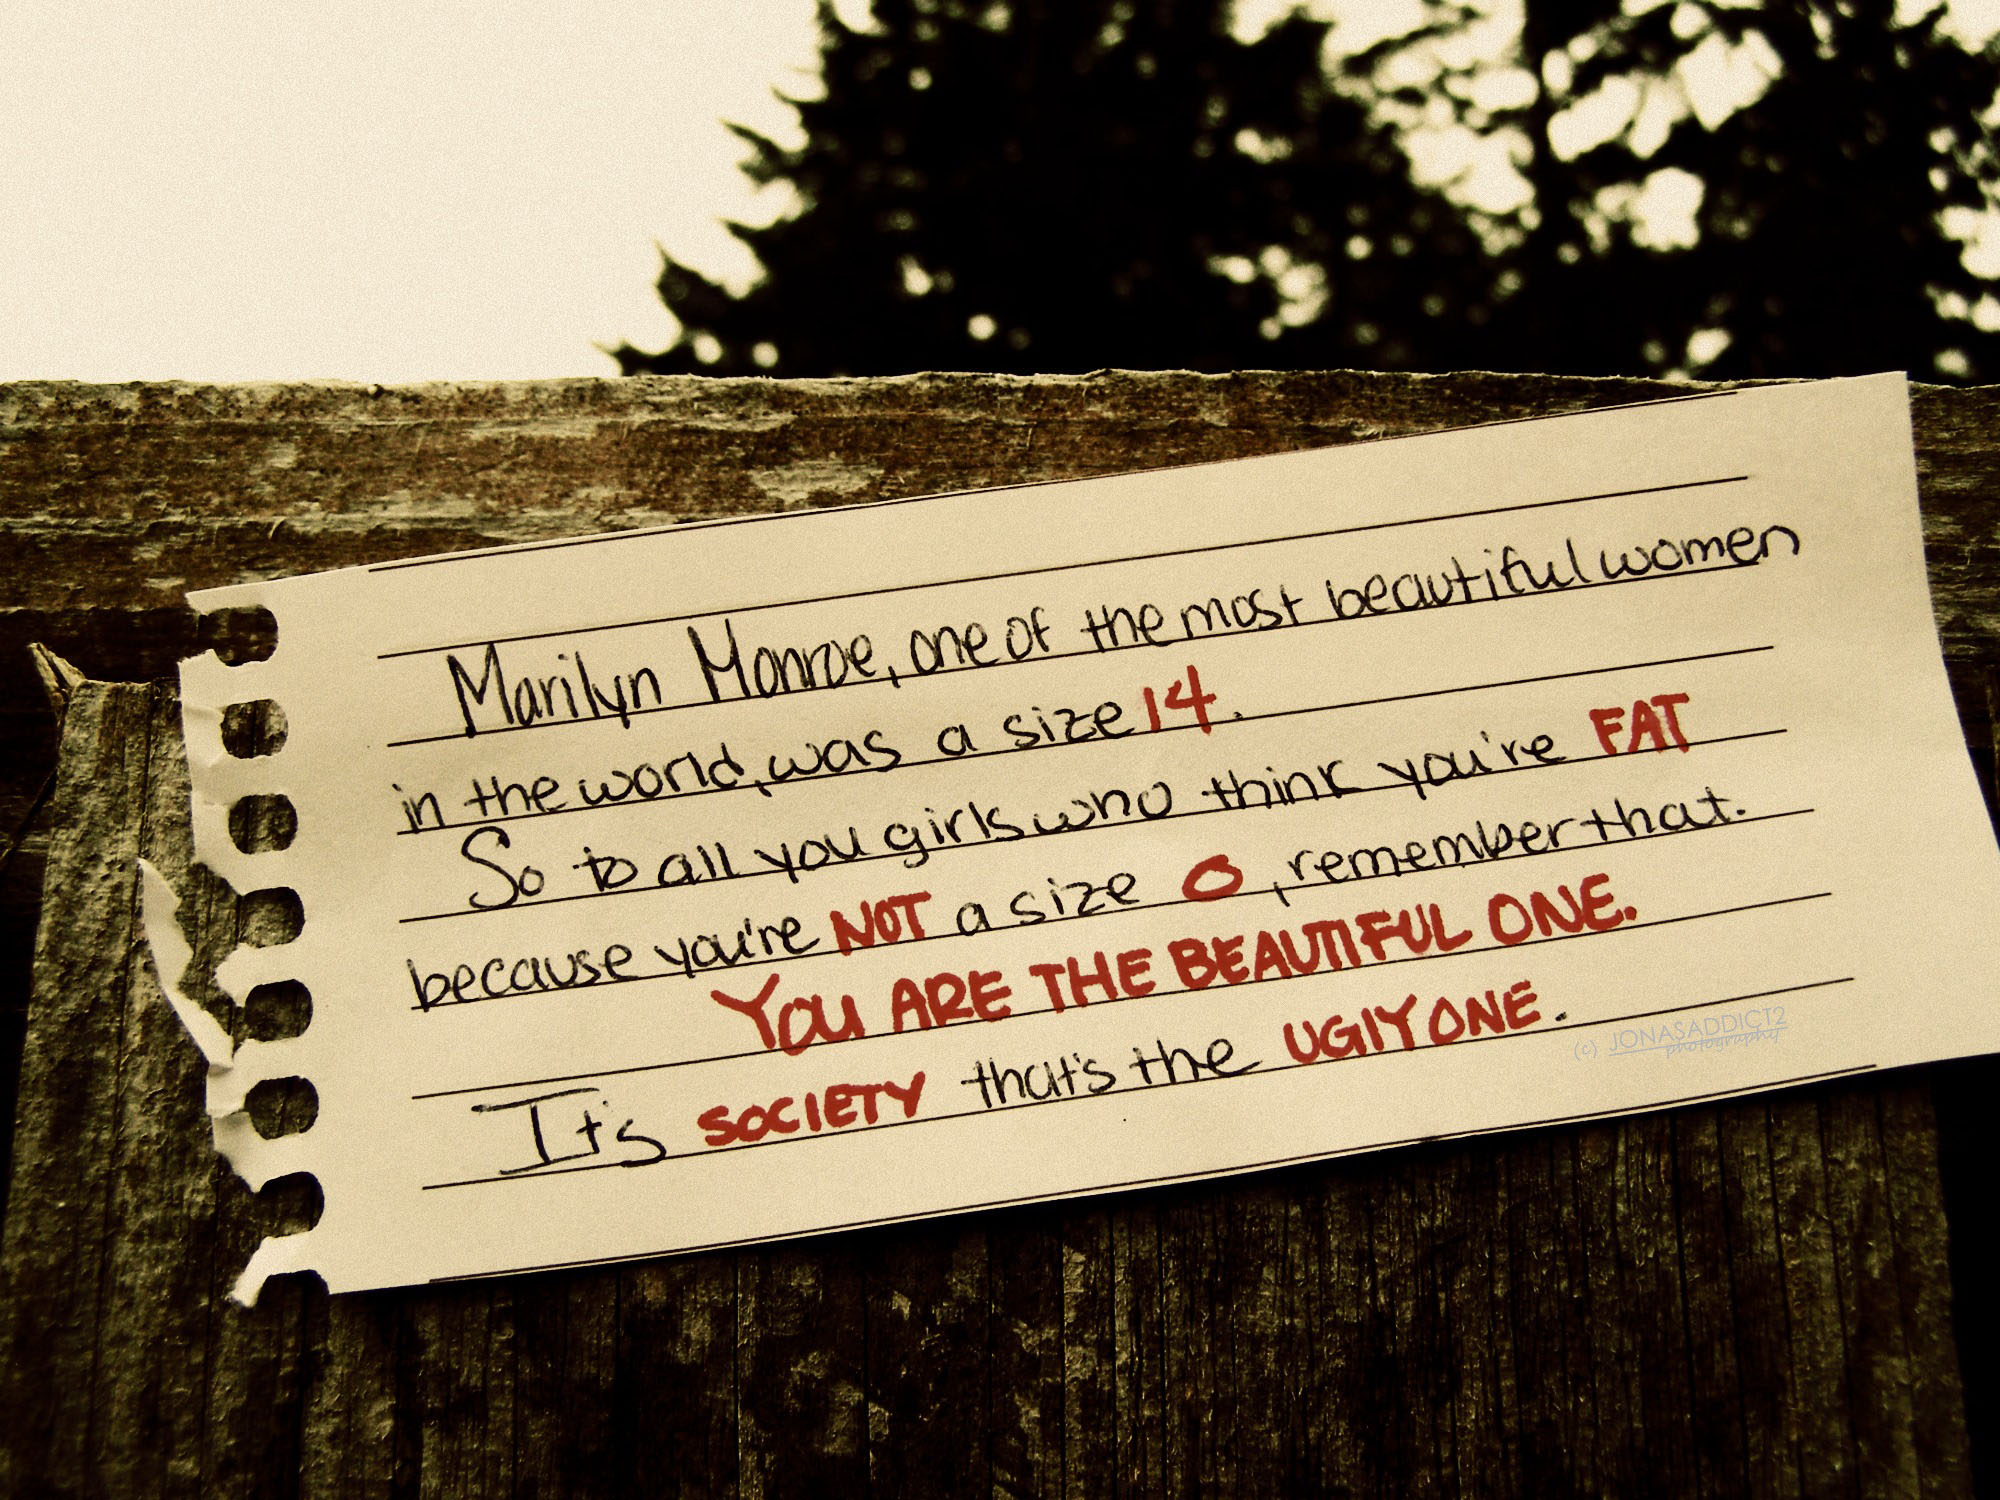 Marilyn Monroe, one of the most beautiful women
in the world, was a size 14.
So to all you girls who think you're FAT
because you're NOT a size 0, remember that.
YOU ARE THE BEAUTIFUL ONE.
It's SOCIETY that's the UGLY ONE.
(c) JONASADDICT2
photography